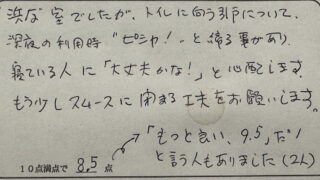 "浜な"室でしたが、トイレに向う引戸について、
深夜の利用時"ピシャ!"と鳴る事があり
寝ている人に「大丈夫かな!」と心配します。
もう少しスムースに閉まる工夫をお願いします。
「もっと良い、9.5」だ!
と言う人もありました(2人)
10点満点で 8.5 点